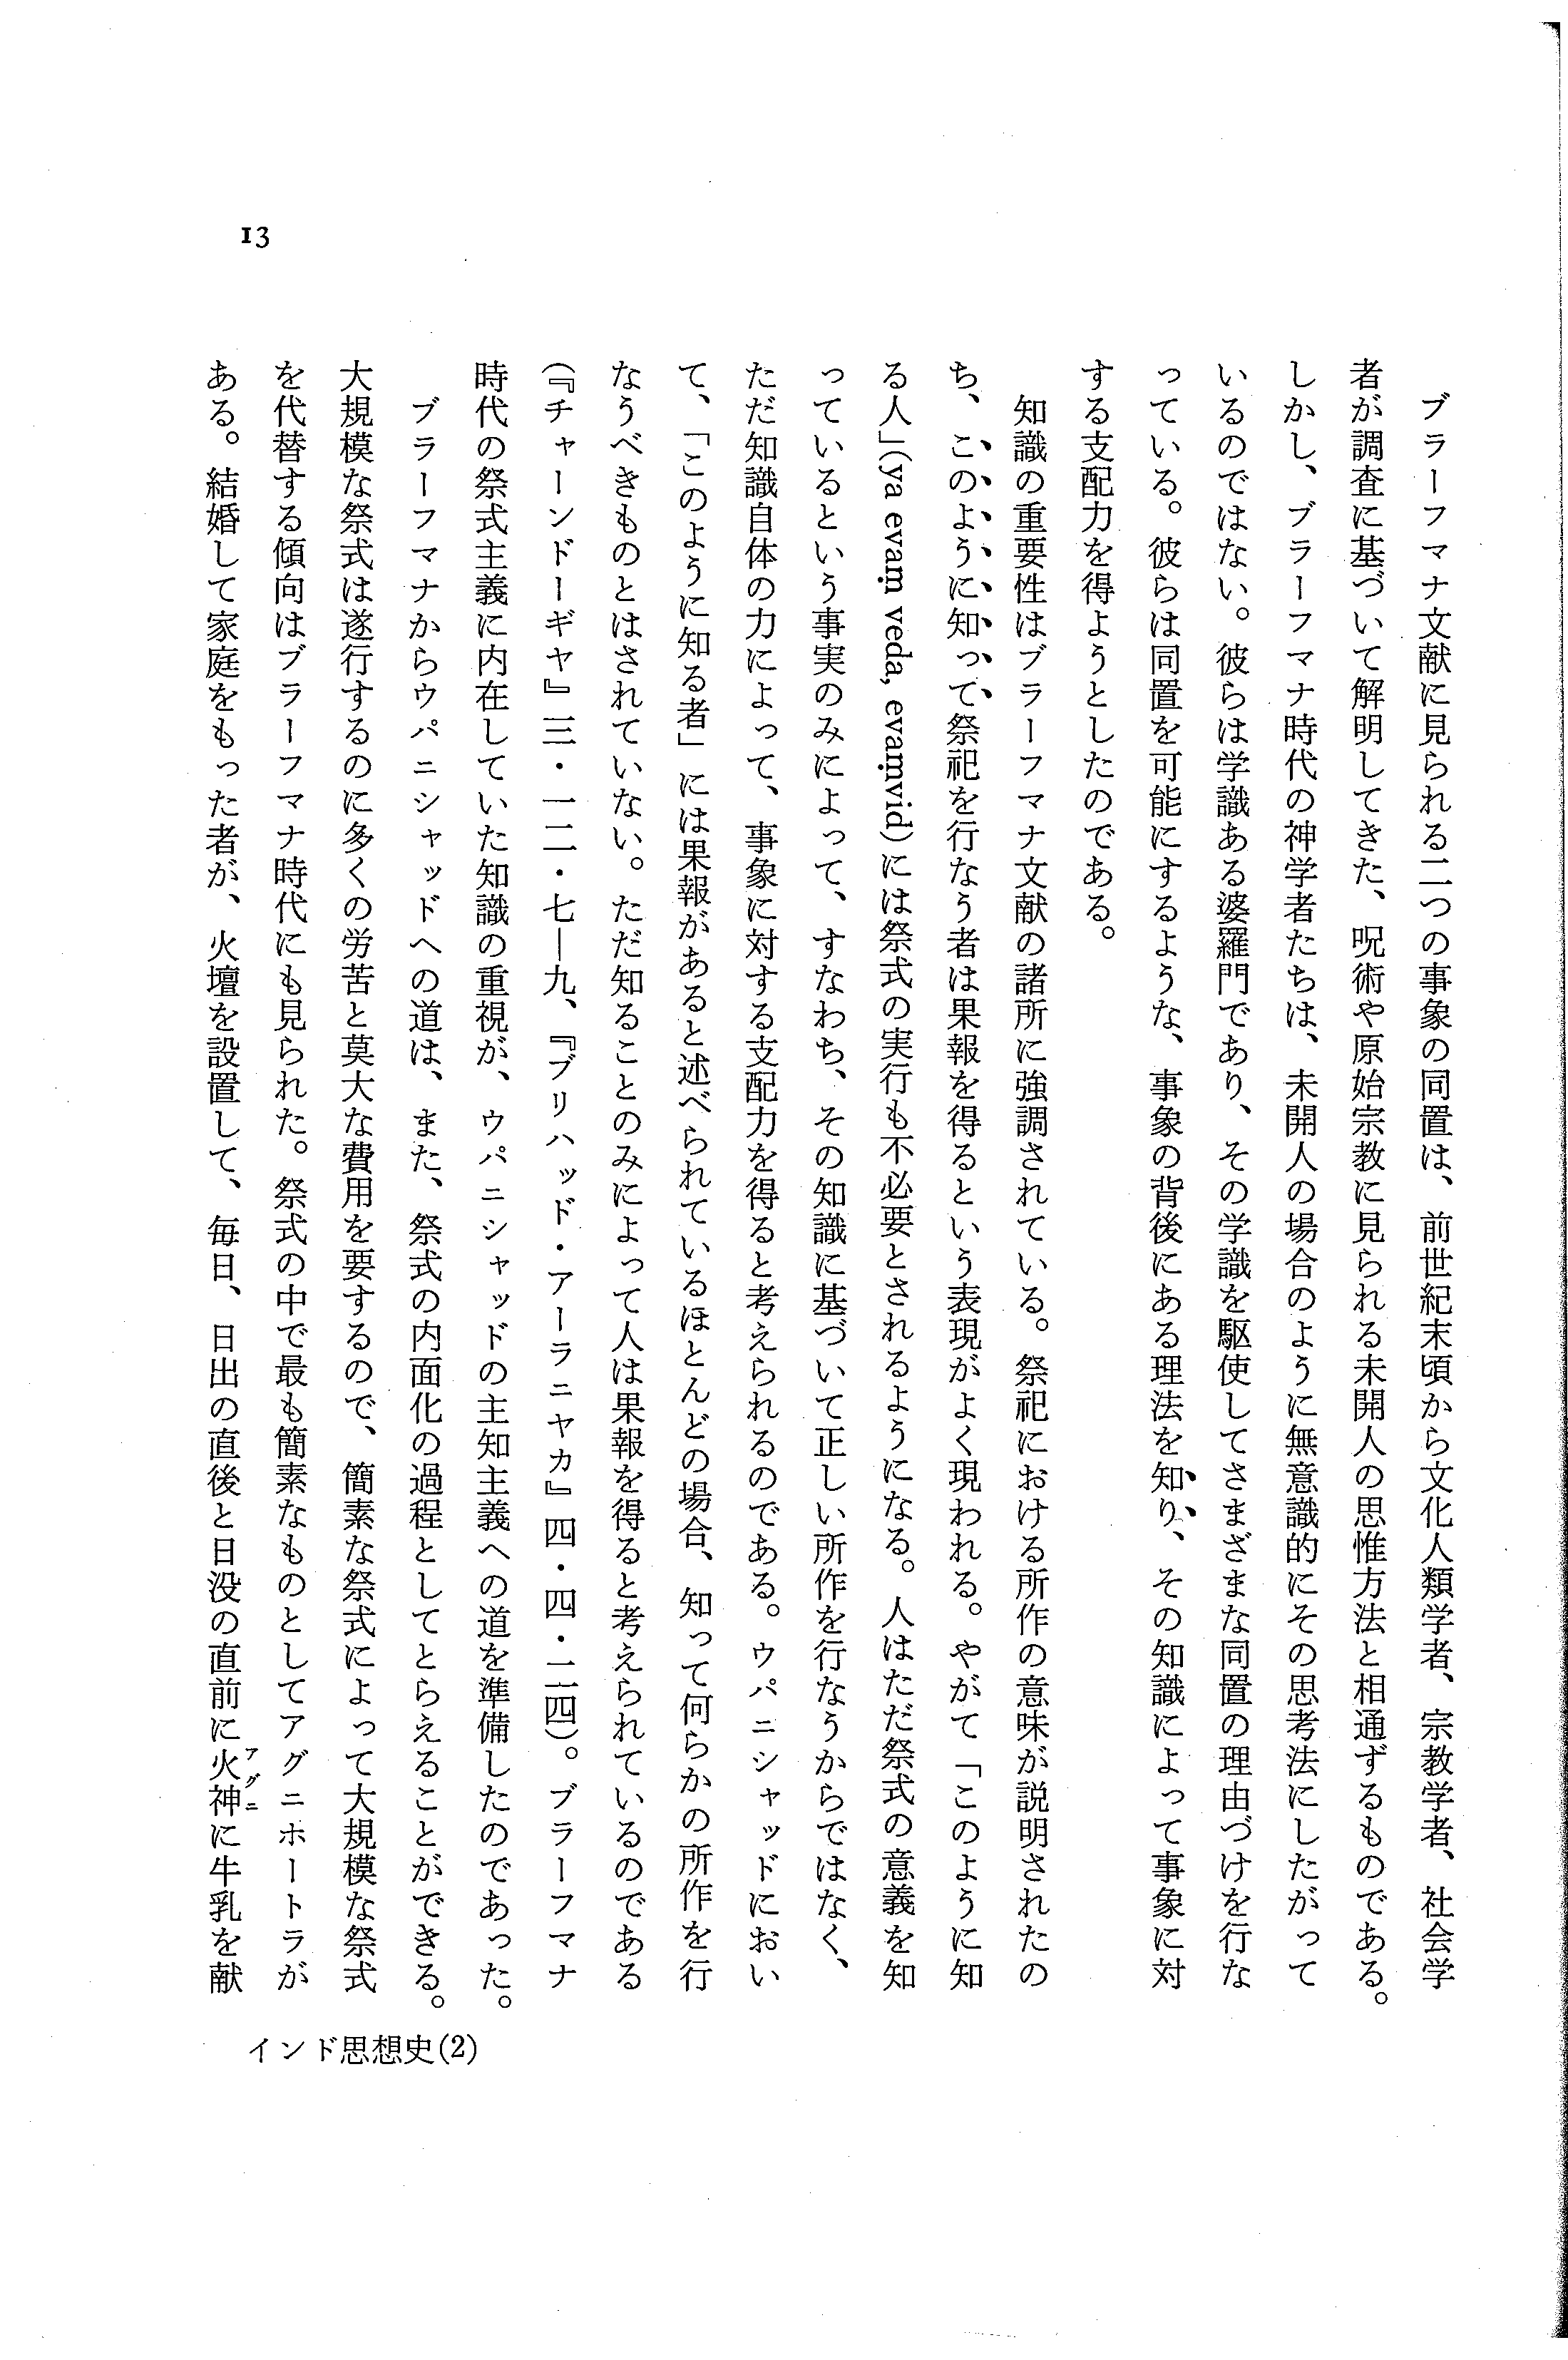 13
ブラーフマナ文献に見られる二つの事象の同置は、前世紀末頃から文化人類学者、宗教学者、社会学
者が調査に基づいて解明してきた、呪術や原始宗教に見られる未開人の思惟方法と相通ずるものである。
しかし、ブラーフマナ時代の神学者たちは、未開人の場合のように無意識的にその思考法にしたがって
いるのではない。彼らは学識ある婆羅門であり、その学識を駆使してさまざまな同置の理由づけを行な
っている。彼らは同置を可能にするような、事象の背後にある理法を知り、その知識によって事象に対
する支配力を得ようとしたのである。
知識の重要性はブラーフマナ文献の諸所に強調されている。祭祀における所作の意味が説明されたの
ち、このように知って祭祀を行なう者は果報を得るという表現がよく現われる。やがて「このように知
る人」(ya evaṃ veda, evaṃvid)には祭式の実行も不必要とされるようになる。人はただ祭式の意義を知
っているという事実のみによって、すなわち、その知識に基づいて正しい所作を行なうからではなく、
ただ知識自体の力によって、事象に対する支配力を得ると考えられるのである。ウパニシャッドにおい
て、「このように知る者」には果報があると述べられているほとんどの場合、知って何らかの所作を行
なうべきものとはされていない。ただ知ることのみによって人は果報を得ると考えられているのである
(『チャーンドーギヤ』三・一二・七―九、『ブリハッド・アーラニヤカ』四・四・二四)。ブラーフマナ
時代の祭式主義に内在していた知識の重視が、ウパニシャッドの主知主義への道を準備したのであった。
ブラーフマナからウパニシャッドへの道は、また、祭式の内面化の過程としてとらえることができる。
大規模な祭式は遂行するのに多くの労苦と莫大な費用を要するので、簡素な祭式によって大規模な祭式
を代替する傾向はブラーフマナ時代にも見られた。祭式の中で最も簡素なものとしてアグニホートラが
ある。結婚して家庭をもった者が、火壇を設置して、毎日、日出の直後と日没の直前に火神アグニに牛乳を献
インド思想史(2)